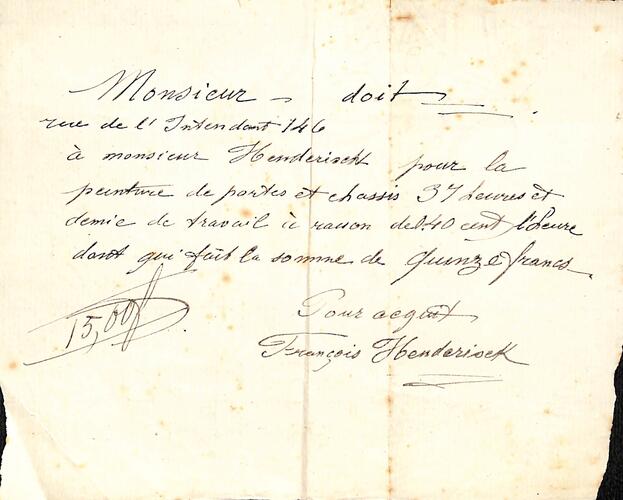 Monsieur - doit
rue de l'Intendant 146
à monsieur Henderisck pour la
peinture de portes et chassis 37 heures et
demie de travail à raison de 0.40 cent l'heure
dont qui fait la somme de quinze francs
15,00f
Pour acquit
François Henderisck